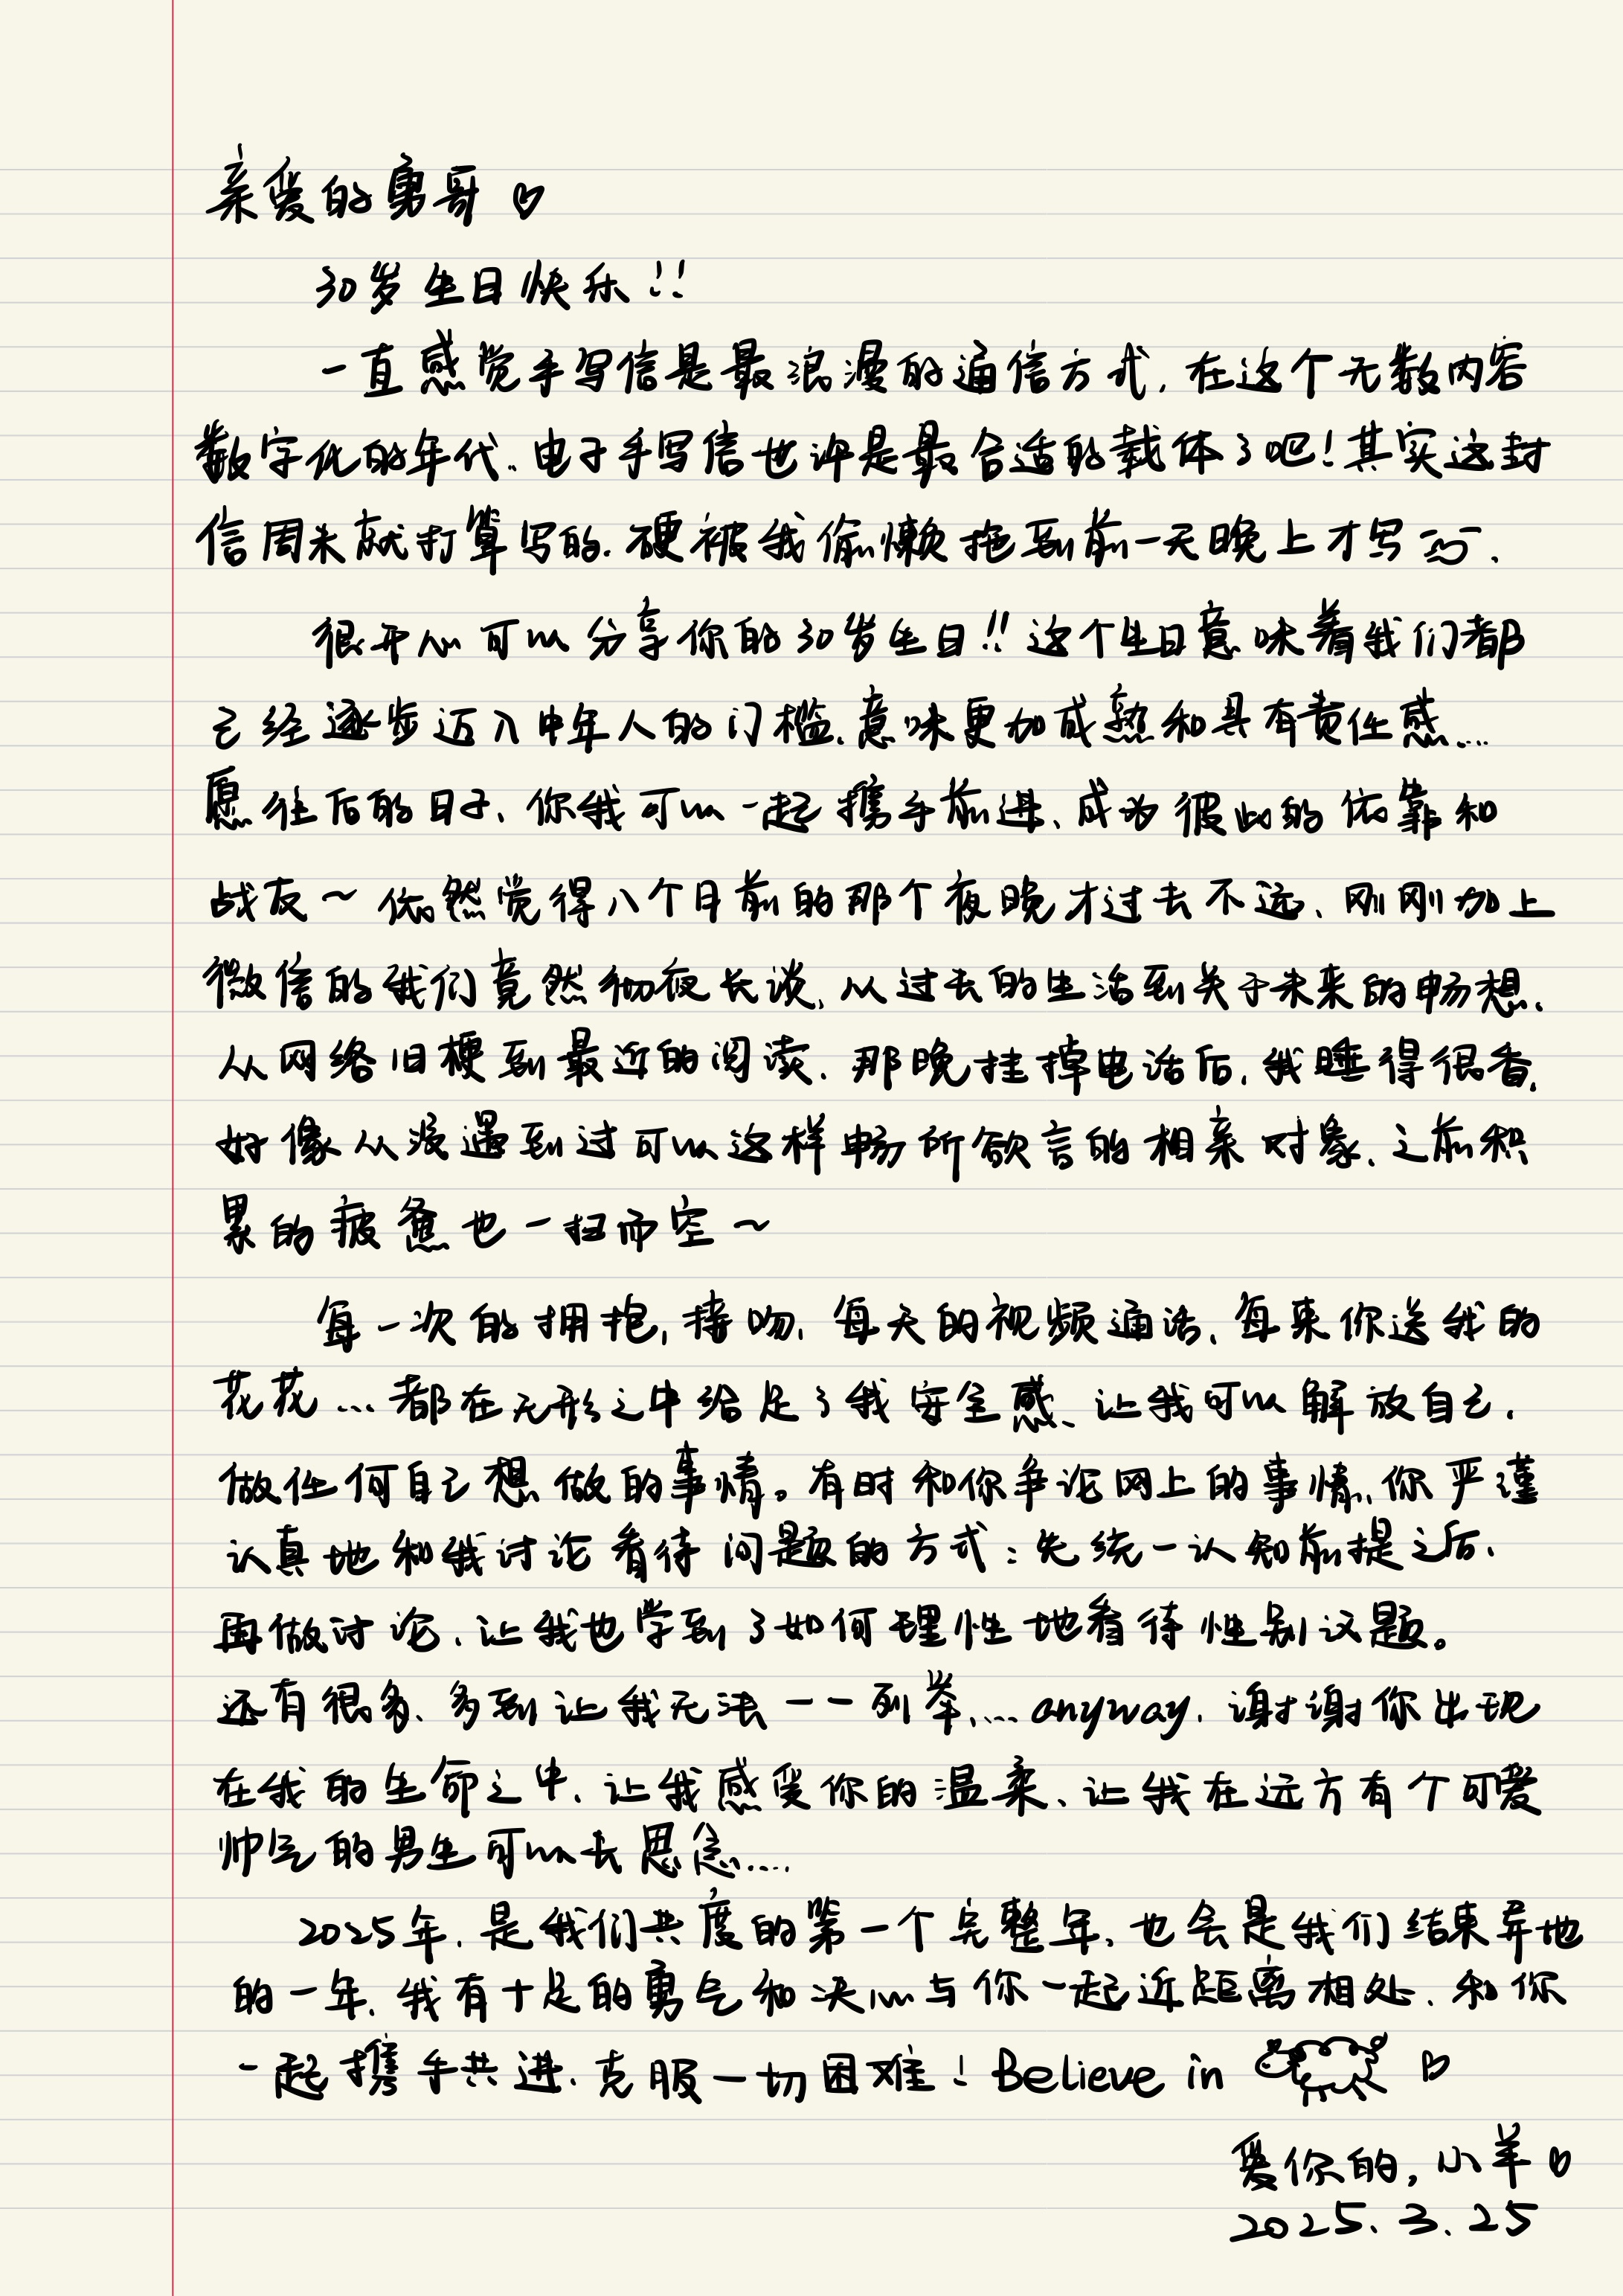 亲爱的勇哥
30岁生日快乐!!
一直感觉手写信是最浪漫的通信方式,在这个无数内容
数字化的年代、电子手写信也许是最合适的载体了吧!其实这封
信周末就打算写的.硬被我偷懒拖到前一天晚上才写
很开心可以分享你的30岁生日!!这个生日意味着我们都
已经逐步迈入中年人的门槛、意味更加成熟和具有责任感...
愿往后的日子、你我可以一起携手前进、成为彼此的依靠和
战友~依然觉得八个月前的那个夜晚才过去不远、刚刚加上
微信的我们竟然彻夜长谈、从过去的生活到关于未来的畅想、
从网络旧梗到最近的阅读、那晚挂掉电话后,我睡得很香、
好像从没遇到过可以这样畅所欲言的相亲对象、之前积
累的疲惫也一扫而空~
每一次的拥抱,接吻、每天的视频通话、每束你送我的
花花...都在无形之中给足了我安全感、让我可以解放自己.
做任何自己想做的事情。有时和你争论网上的事情、你严谨
认真地和我讨论看待问题的方式:先统一认知前提之后、
再做讨论、让我也学到了如何理性地看待性别议题。
还有很多、多到让我无法一一列举....anyway,谢谢你出现
在我的生命之中、让我感受你的温柔、让我在远方有个可爱
帅气的男生可以长思念....
2025年,是我们共度的第一个完整年、也会是我们结束异地
的一年、我有十足的勇气和决心与你一起近距离相处、和你
一起携手共进、克服一切困难!Believe in
爱你的,小羊
2025.3.25